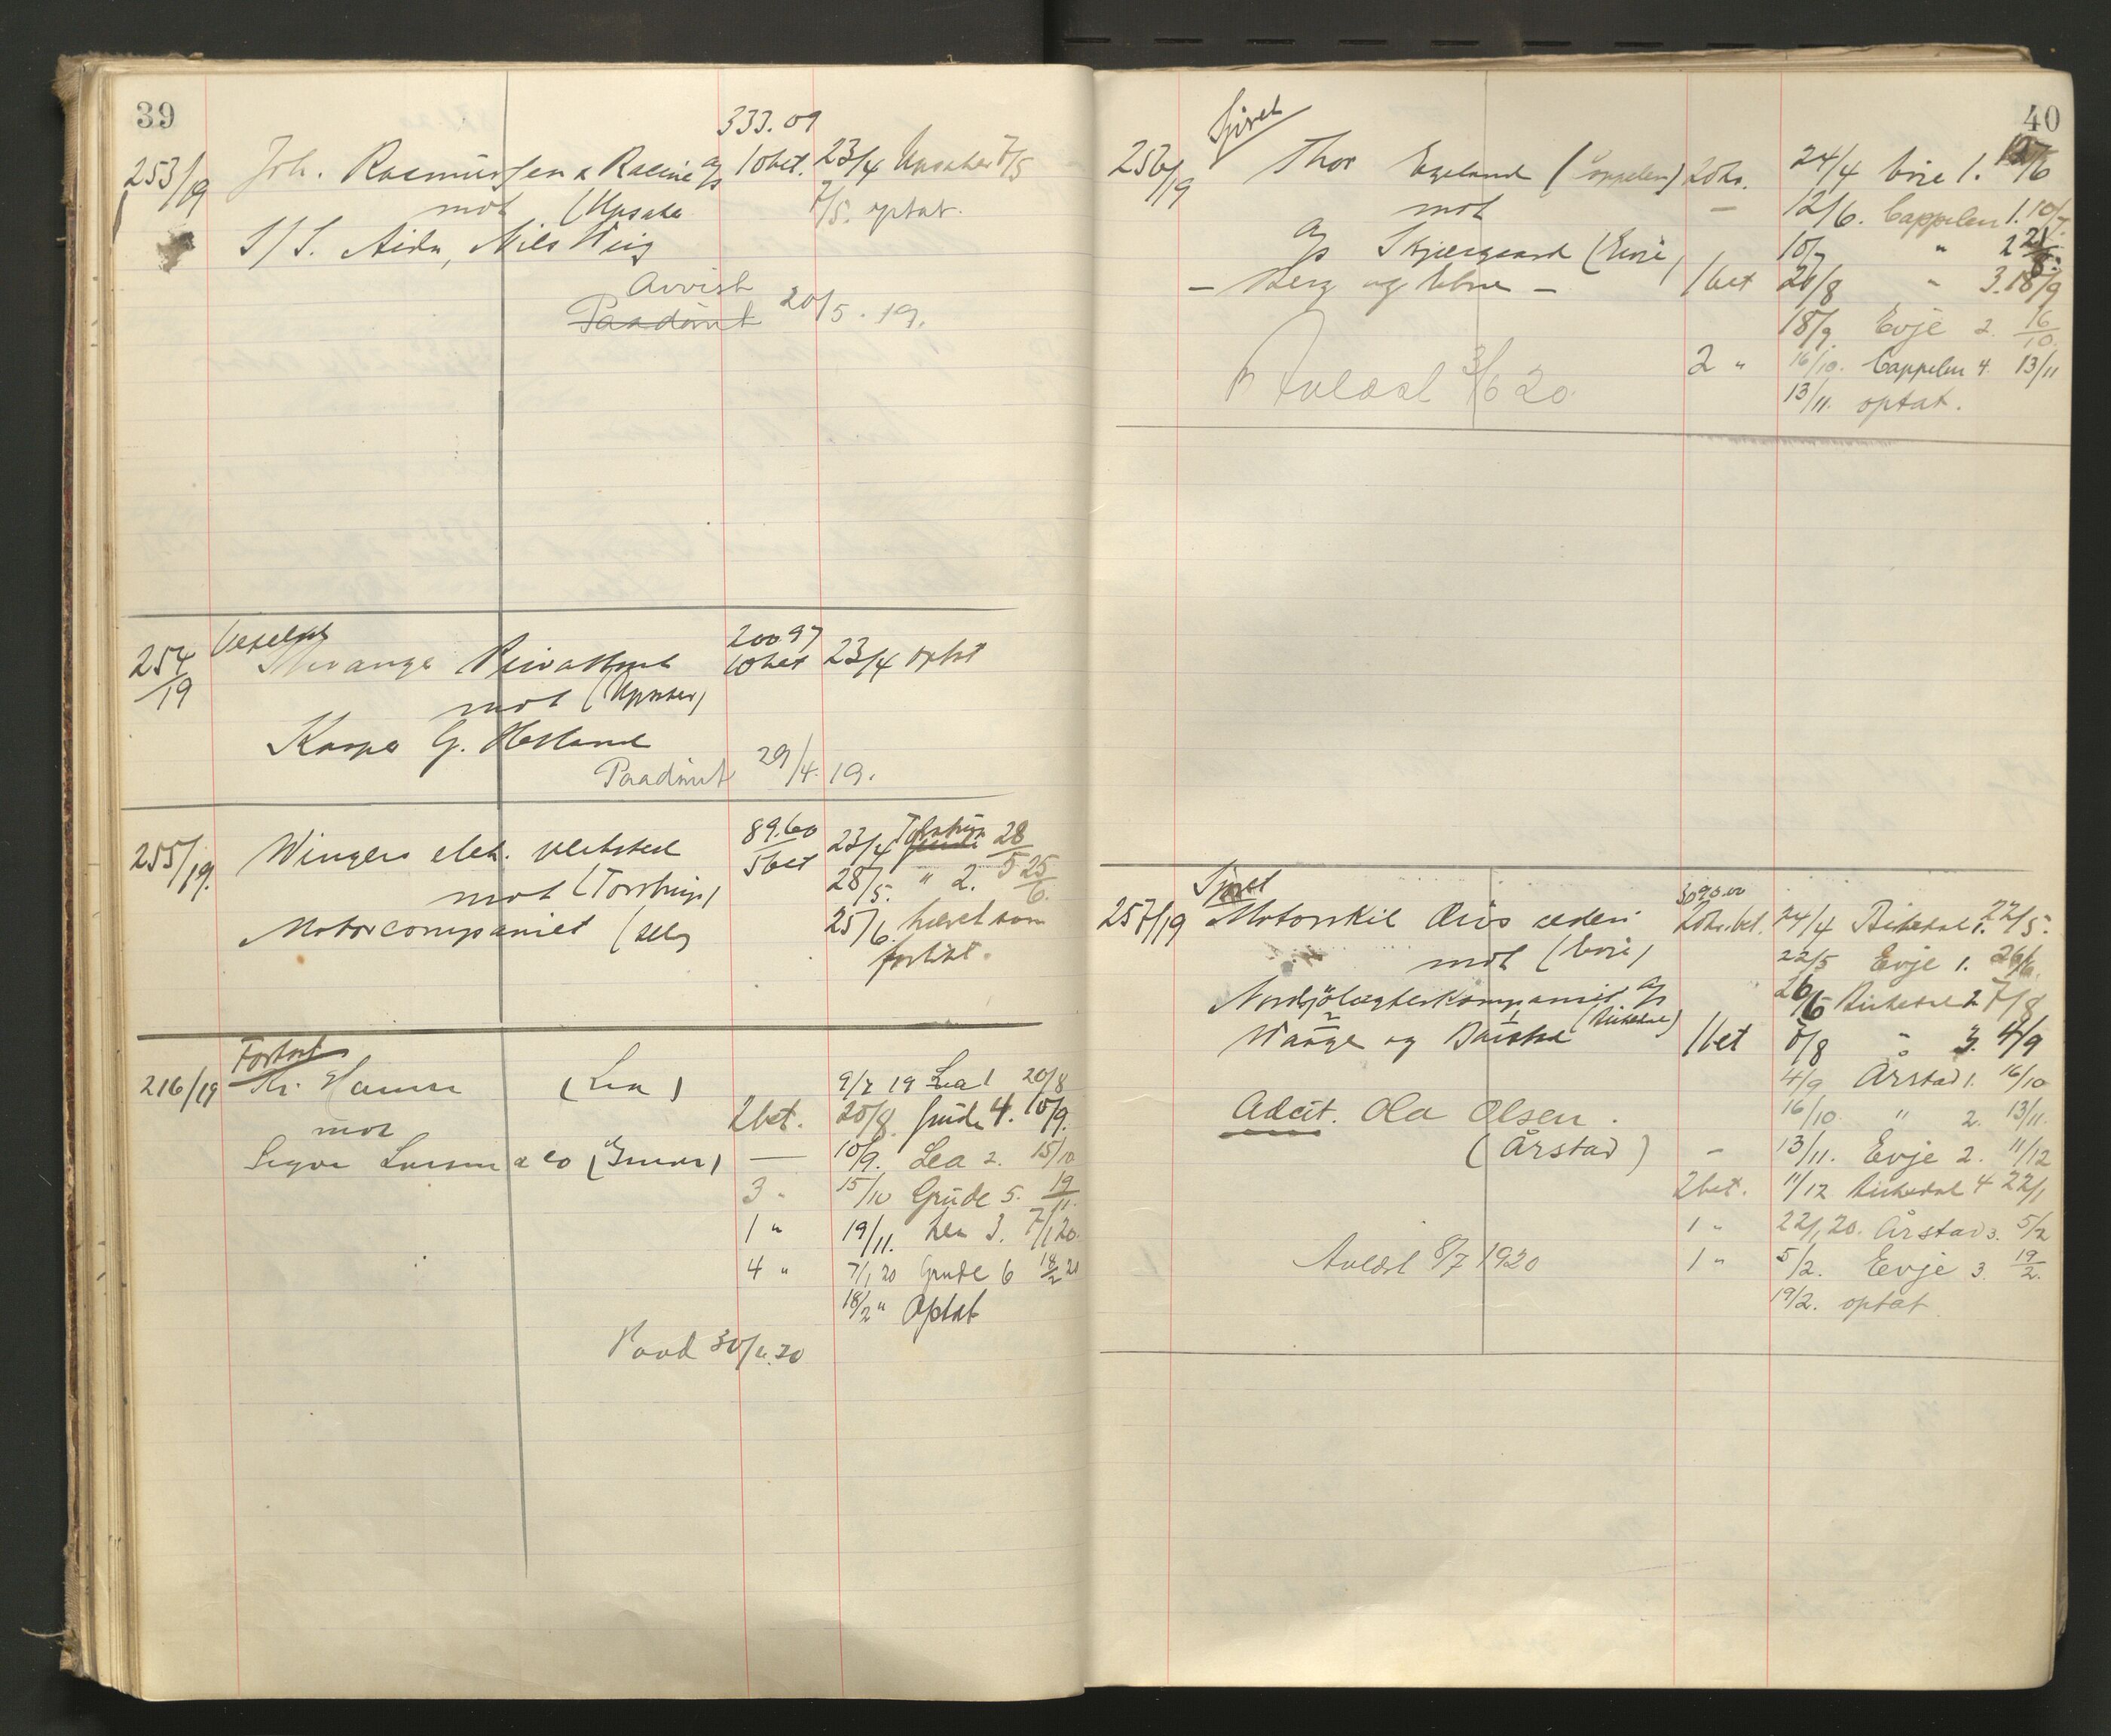 39
333.09
253/19 Joh. Rasmussen & Racine A/S 10 bet. 23/4 Upsaker 7/5
mot (Upsaker 7/5. optat.
S/S. Aida, Nils Wiig
Avvist
Paadømt 20/5. 19.
Vexelsak 200.97
254/19 Privatbank 10 bet 23/4 optat
mot (Upsaker)
Kasper G. Helland
Paadømt 29/4. 19.
89.60
255/19. Wingers elek. verksted 5 bet 23/4 Torstrup 28/5
mot (Torstrup) 28/5. " 2. 25/6.
Motorcompaniet (selv 25/6. hævet som
forlikt.
Fortsat
216/19 Kr. (Lea) 9/7 19 Lea 1 20/8
mot 2 bet. 20/8. Grude 4. 10/9.
Sigva Larsen & Co (Grude) — 10/9. Lea 2. 15/10
3 " 15/10 Grude 5. 19/11.
1 " 19/11. Lea 3. 7/1 20.
4 " 7/1 20 Grude 6 18/2 20
18/2 " Optat
Paad 30/4.20
40
Sjøret
256/19 Thor Egeland (Cappelen) 20 kr. 24/4 Evje 1. 12/6
mot — 12/6. Cappelen 1. 10/7.
A/S Skjærgaard (Evje) 10/7 " 2 21/8.
— Berg og — 1 bet 21/8 " 3. 18/9
18/9. Evje 2. 16/10.
2 " 16/10. Cappelen 4. 13/11
Avlæst 3/6 20. 13/11. optat.
Sjøret
257/19 Motorskib rederi 20 kr. bet. 24/4 Birkedal 1. 22/5.
mot (Evje) 22/5 Evje 1. 26/6.
Nordsjølægterkompaniet A/S 26/6 Birkedal 2 7/8
Waage og (Birkedal) 1 bet 7/8 " 3. 4/9
4/9 Årstad 1. 16/10
Adcit. Ola Olsen. 16/10. " 2. 13/11.
(Årstad) — 13/11. Evje 2. 11/12
2 bet. 11/12 Birkedal 4 22/1
1 " 22/1 20. Årstad 3. 5/2
Avlæst 8/7 1920 1 " 5/2. Evje 3. 19/2.
19/2. optat